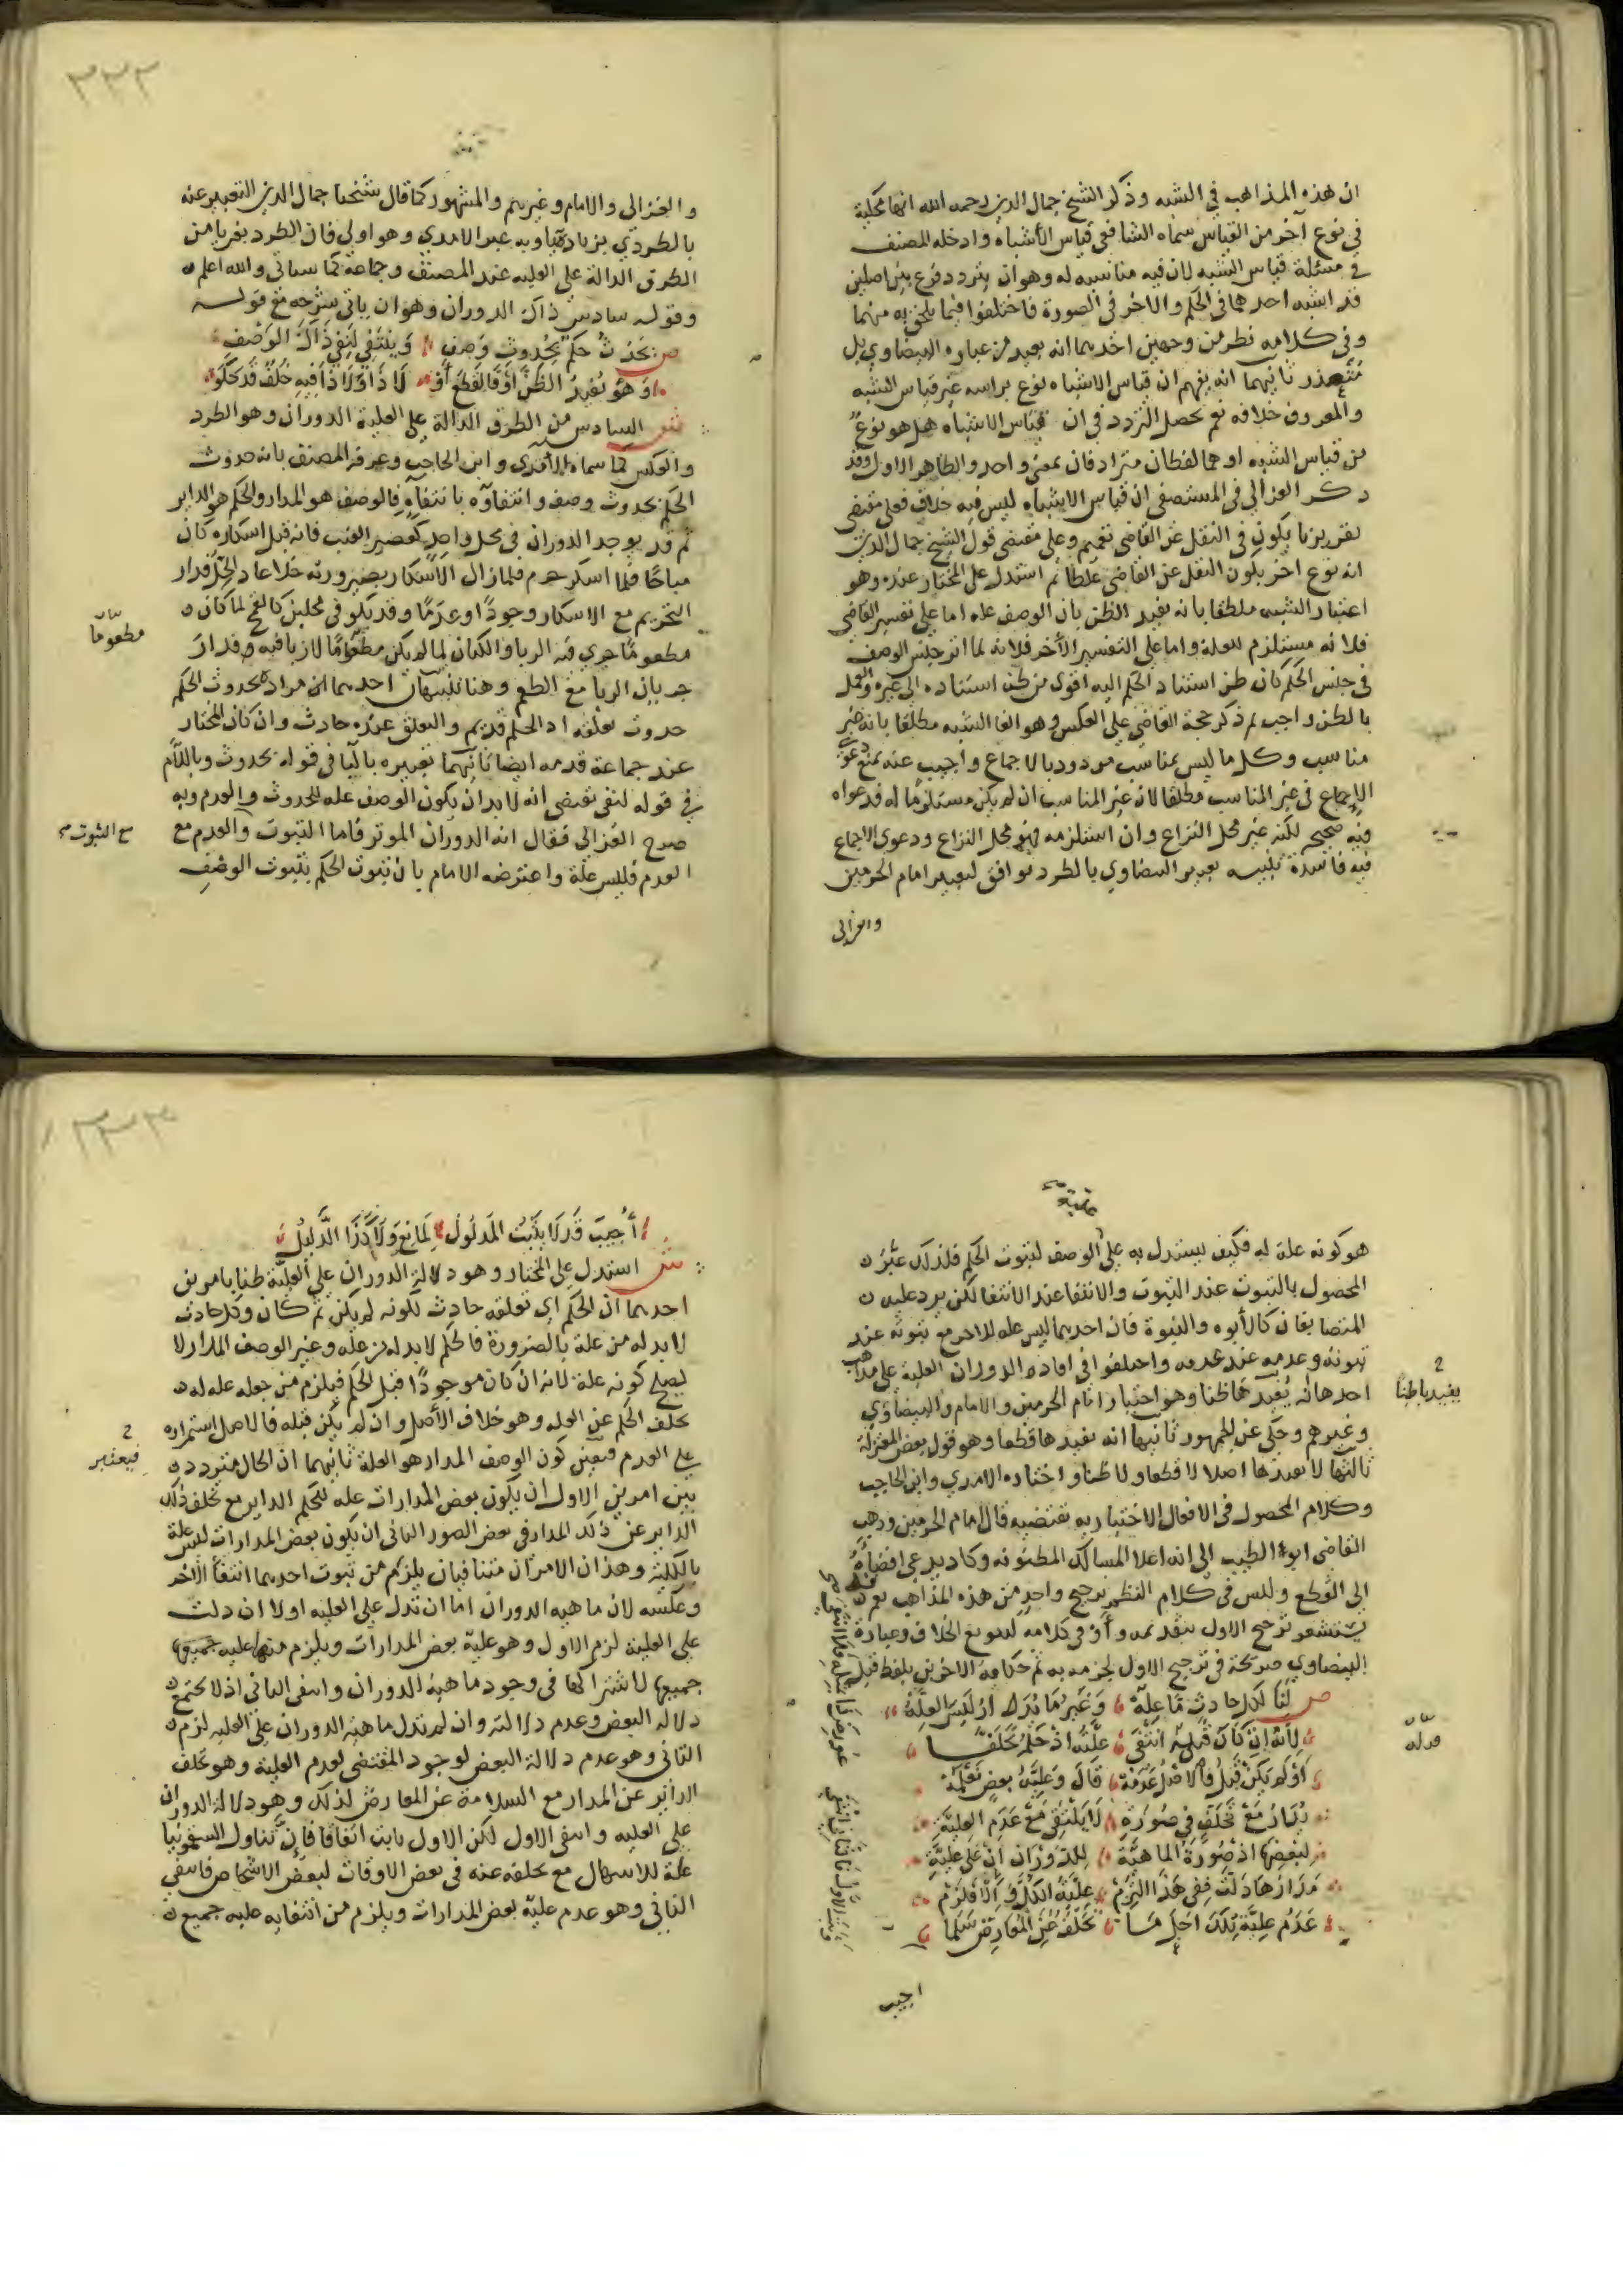 ان هذه المذاهب في الشبه وذكر الشيخ جمال الدين رحمه الله انها محكية
في نوع آخر من القياس سماه الشافعي قياس الأشباه وادخله المصنف
في مسئلة قياس الشبه لان فيه مناسبه له وهو ان يتردد فرع بين اصلين
قد اشبه احدهما في الحكم والاخر في الصورة فاختلفوا فيما يلحق به منهما
وفي كلامه نظر من وجهين احدهما انه بعيد من عباره البيضاوي بل
متعذر ثانيهما انه يفهم ان قياس الاشباه نوع براسه غير قياس الشبه
والمعروف خلافه نعم يحصل التردد في ان قياس الاشباه هل هو نوع
من قياس الشبه او هما لفظان مترادفان بمعنى واحد والظاهر الاول وقد
ذكر الغزالي في المستصفى ان قياس الاشباه ليس فيه خلاف فعلى مقتضى
تقريرنا يكون في النقل عن القاضي تعميم وعلى مقتضى قول الشيخ جمال الدين
انه نوع اخر يكون النقل عن القاضي غلطا ثم استدل على المختار عنده وهو
اعتبار الشبه مطلقا بانه يفيد الظن بان الوصف عله اما على تفسير القاضي
فلانه مستلزم للعلة واما على التفسير الأخر فلانه لما اثر جنس الوصف
في جنس الحكم كان ظن استناد الحكم اليه اقوى من ظن استناده الى غيره والعمل
بالظن واجب ثم ذكر حجة القاضي على العكس وهو الغا الشبه مطلقا بانه غير
مناسب وكل ما ليس بمناسب مردود بالاجماع واجيب عنه بمنع دعوى
الاجماع في غير المناسب مطلقا لان غير المناسب ان لم يكن مستلزما له فدعواه
فيه صحيح لكنه غير محل النزاع وان استلزمه فهو محل النزاع ودعوى الاجماع
فيه فاسدة تنبيه تعبير البيضاوي بالطرد موافق لتعبير امام الحرمين
والغزالي
٣٣٢
والغزالي والامام وغيرهم والمشهور كما قال شيخنا جمال الدين التعبير عنه
بالطردي بزيادة ياء وبه عبر الامدي وهو اولى فان الطرد بغير يا من
الطرق الدالة على العليه عند المصنف وجماعة كما سياتي والله اعلم
وقوله سادس ذاك الدوران وهو ان ياتي شرحه مع قوله
ص يحدث حكم بحدوث وصف وينتفي لنفي ذاك الوصف
وهو يفيد الظن او فالقطع أو لا ذا ولا ذا فيه خلف قد حكوا
ش السادس من الطرق الدالة على العلية الدوران وهو الطرد
والعكس كما سماه الآمدي وابن الحاجب وعرفه المصنف بانه حدوث
الحكم بحدوث وصف وانتفاوه بانتفائه فالوصف هو المدار والحكم هو الداير
ثم قد يوجد الدوران في محل واحد كعصير العنب فانه قبل اسكاره كان
مباحًا فلما اسكر حرم فلما زال الاسكار بصيرورته خلا عاد الحل فدار
التحريم مع الاسكار وجودًا وعدمًا وقد يكون في محلين كالقمح لما كان
مطعومًا جرى فيه الربا والكتان لما لم يكن مطعومًا لا ربا فيه فدار
مطعوما
جريان الربا مع الطعم وهنا تنبيهان احدهما ان مراده بحدوث الحكم
حدوث تعلقه اذ الحكم قديم والتعلق عنده حادث وان كان المختار
عند جماعة قدمه ايضا ثانيهما تعبيره بالبا في قوله بحدوث وباللام
في قوله لنفي يقتضي انه لا بد ان يكون الوصف عله للحدوث والعدم وبه
صرح الغزالي فقال انه الدوران الموثر فاما الثبوت والعدم مع
مع الثبوت
العدم فليس علة واعترضه الامام بان ثبوت الحكم بثبوت الوصف
هو كونه علة له فكيف يستدل به على الوصف لثبوت الحكم فلذلك عبر
المحصول بالثبوت عند الثبوت والانتفا عند الانتفا لكن يرد عليه
المتضايفان كالأبوه والبنوة فان احدهما ليس علة للاخر مع ثبوته عند
ثبوته وعدمه عند عدمه واختلفوا في افادة الدوران العلية على مذاهب
احدها انه يفيدها ظنا وهو اختيار امام الحرمين والامام والبيضاوي
يفيدها ظنا
وغيرهم وحكي عن الجمهور ثانيها انه يفيدها قطعا وهو قول بعض المعتزلة
ثالثها لا يفيدها اصلا لا قطعا ولا ظنا واختاره الامدي وابن الحاجب
وكلام المحصول في الافعال الاختياريه يقتضيه قال امام الحرمين وذهب
القاضي ابو الطيب الى انه اعلا المسالك المظنونه وكاد يدعي افضاه
الى القطع وليس في كلام النظم ترجيح واحد من هذه المذاهب نعم
يستشعر ترجيح الاول بتقديمه وأو في كلامه لتنويع الخلاف وعبارة
البيضاوي صريحة في ترجيح الاول لجزمه به ثم حكايه الاخرين بلفظ قيل
ص لنا لكل حادث ما عله وغير ما تدار ليس العله
لأنه ان كان قبله انتفى علته اذ حكمه تخلفا
او لم يكن قبل فالاصل عدمه قال وعلية بعض تعلمه
يدار مع تخلف في صورة لا يلتقي مع عدم العلية
لبعضها اذ صورة الماهية للدوران ان على علية
مدارها دلت ففي هذا التزم علية الكل والا فلزم
عدم علية تلك اجل ما تخلف عن المعارض سلما
اجيب
اجيب قد لا يثبت المدلول لمانع ولا كذا الدليل
ش استدل على المختار وهو دلالة الدوران على العلية ظنا بامرين
احدهما ان الحكم اي تعلقه حادث لكونه لم يكن ثم كان وكل حادث
لا بد له من علة بالضرورة فالحكم لا بد له من علة وغير الوصف المدار لا
يصلح كونه علة لانه ان كان موجودًا قبل الحكم فيلزم من جعله عله له
تخلف الحكم عن العله وهو خلاف الأصل وان لم يكن قبله فالاصل استمراره
على العدم فتعين كون الوصف المدار هو العلة ثانيهما ان الحال متردد
بين امرين الاول ان يكون بعض المدارات عله للحكم الداير مع تخلف ذلك
الداير عن ذلك المدار في بعض الصور الثاني ان يكون بعض المدارات ليس علة
بالكلية وهذان الامران متنافيان يلزم من ثبوت احدهما انتفا الاخر
وعكسه لان ماهيه الدوران اما ان تدل على العليه اولا ان دلت
على العلية لزم الاول وهو علية بعض المدارات ويلزم منها عليه جميعها
جميعها لاشتراكها في وجود ماهية الدوران وانتفى الثاني اذ لا يجتمع
دلاله البعض وعدم دلالته وان لم تدل ماهية الدوران على العليه لزم
الثاني وهو عدم دلالة البعض لوجود المقتضي لعدم العلية وهو تخلف
الداير عن المدار مع السلامة عن المعارض لذلك وهو دلالة الدوران
على العليه وانتفى الاول لكن الاول ثابت اتفاقا فإن تناول السقمونيا
علة للاسهال مع تخلفه عنه في بعض الاوقات لبعض الاشخاص فانتفى
الثاني وهو عدم علية بعض المدارات ويلزم من انتفايه عليه جميع